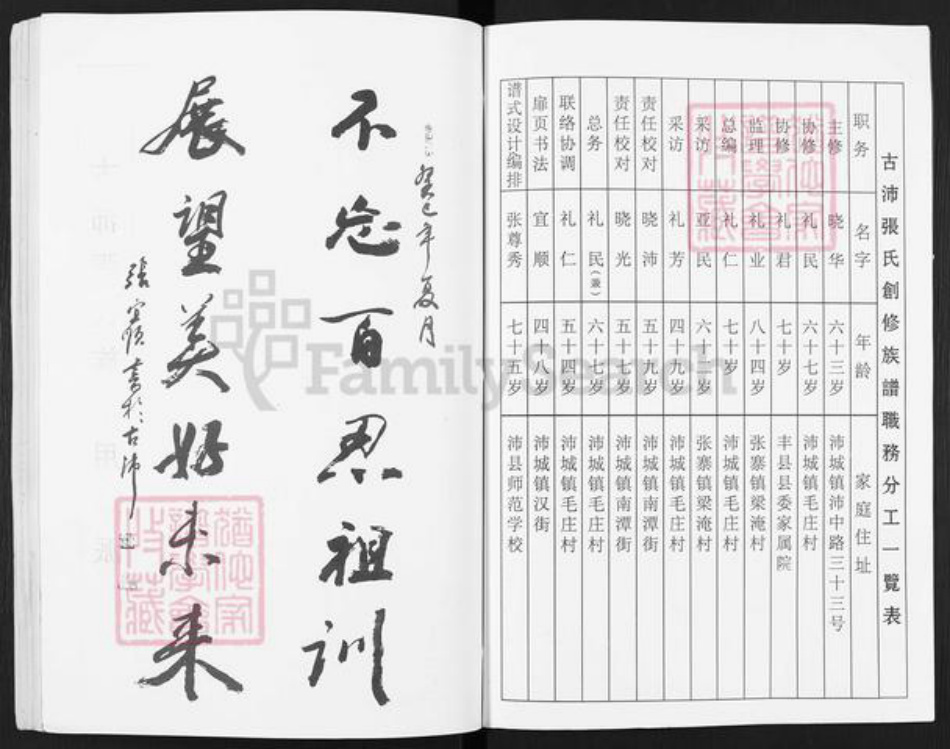 古沛張氏創修族譜職務分工一覽表
职务 名字 年龄 家庭住址
主修 晓华 六十三岁 沛城镇沛中路三十三号
协修 礼民 六十七岁 沛城镇毛庄村
协修 礼君 七十岁 丰县县委家属院
监理 礼业 八十四岁 张寨镇梁淹村
总编 礼仁 七十岁 沛城镇毛庄村
采访 亚民 六十 岁 张寨镇梁淹村
采访 礼芳 四十九岁 沛城镇毛庄村
责任校对 晓沛 五十九岁 沛城镇南潭街
责任校对 晓光 五十七岁 沛城镇南潭街
总务 礼民(兼) 六十七岁 沛城镇毛庄村
联络协调 礼仁 五十四岁 沛城镇毛庄村
扉页书法 宜顺 四十八岁 沛城镇汉街
谱式设计编排 张尊秀 七十五岁 沛县师范学校
癸巳年夏月
不忘百忍祖训
展望美好未来
張宜顺書於古沛
FamilySearch